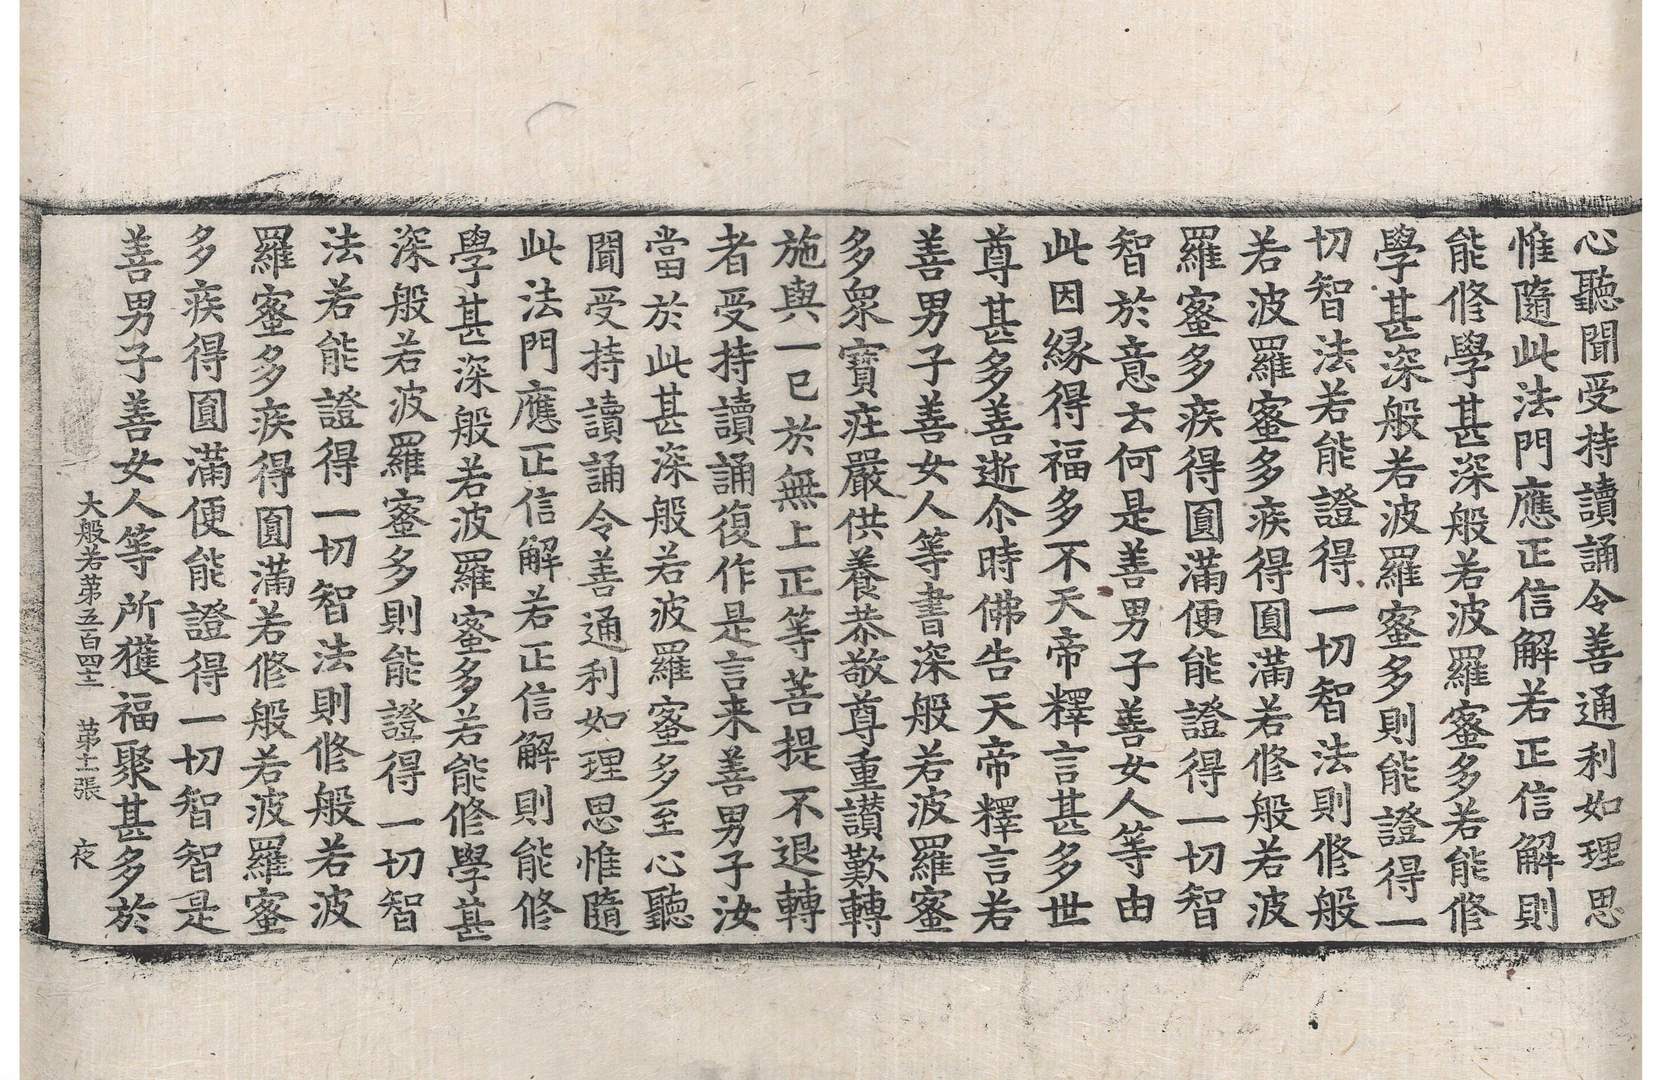 心聽聞受持讀誦令善通利如理思
惟隨此法門應正信解若正信解則
能修學甚深般若波羅蜜多若能修
學甚深般若波羅蜜多則能證得一
切智法若能證得一切智法則修般
若波羅蜜多疾得圓滿若修般若波
羅蜜多疾得圓滿便能證得一切智
智於意云何是善男子善女人等由
此因緣得福多不天帝釋言甚多世
尊甚多善逝尒時佛告天帝釋言若
善男子善女人等書深般若波羅蜜
多眾寶莊嚴供養恭敬尊重讃歎轉
施與一已於無上正等菩提不退轉
者受持讀誦復作是言来善男子汝
當於此甚深般若波羅蜜多至心聽
聞受持讀誦令善通利如理思惟隨
此法門應正信解若正信解則能修
學甚深般若波羅蜜多若能修學甚
深般若波羅蜜多則能證得一切智
法若能證得一切智法則修般若波
羅蜜多疾得圓滿若修般若波羅蜜
多疾得圓滿便能證得一切智智是
善男子善女人等所獲福聚甚多於
大般若第五百四十二 第十一張 夜